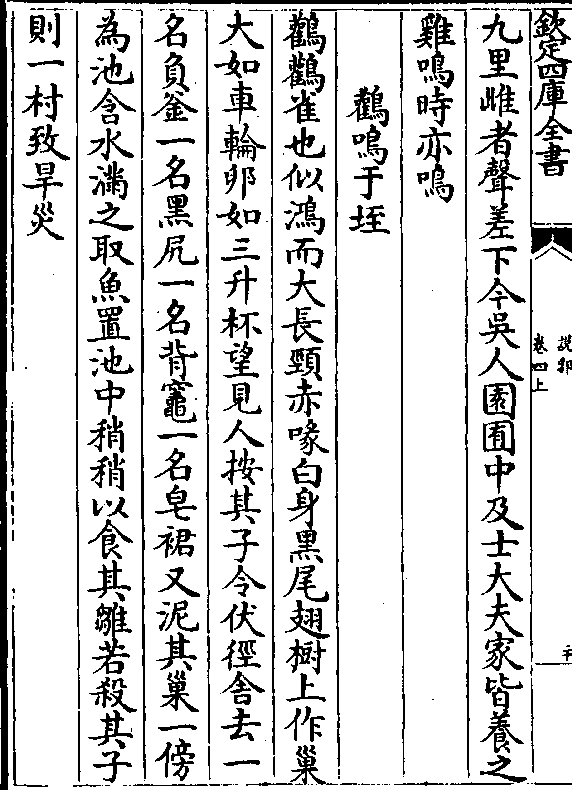 欽定四庫全書
說郛
卷四上
九里雌者聲差下今吳人園囿中及士大夫家皆養之
雞鳴時亦鳴
鸛鳴于垤
鸛鸛雀也似鴻而大長頸赤喙白身黑尾翅樹上作巢
大如車輪卵如三升杯望見人按其子令伏徑舍去一
名負釜一名黑尻一名背竈一名皂裙又泥其巢一傍
為池含水滿之取魚置池中稍稍以食其雛若殺其子
則一村致旱災